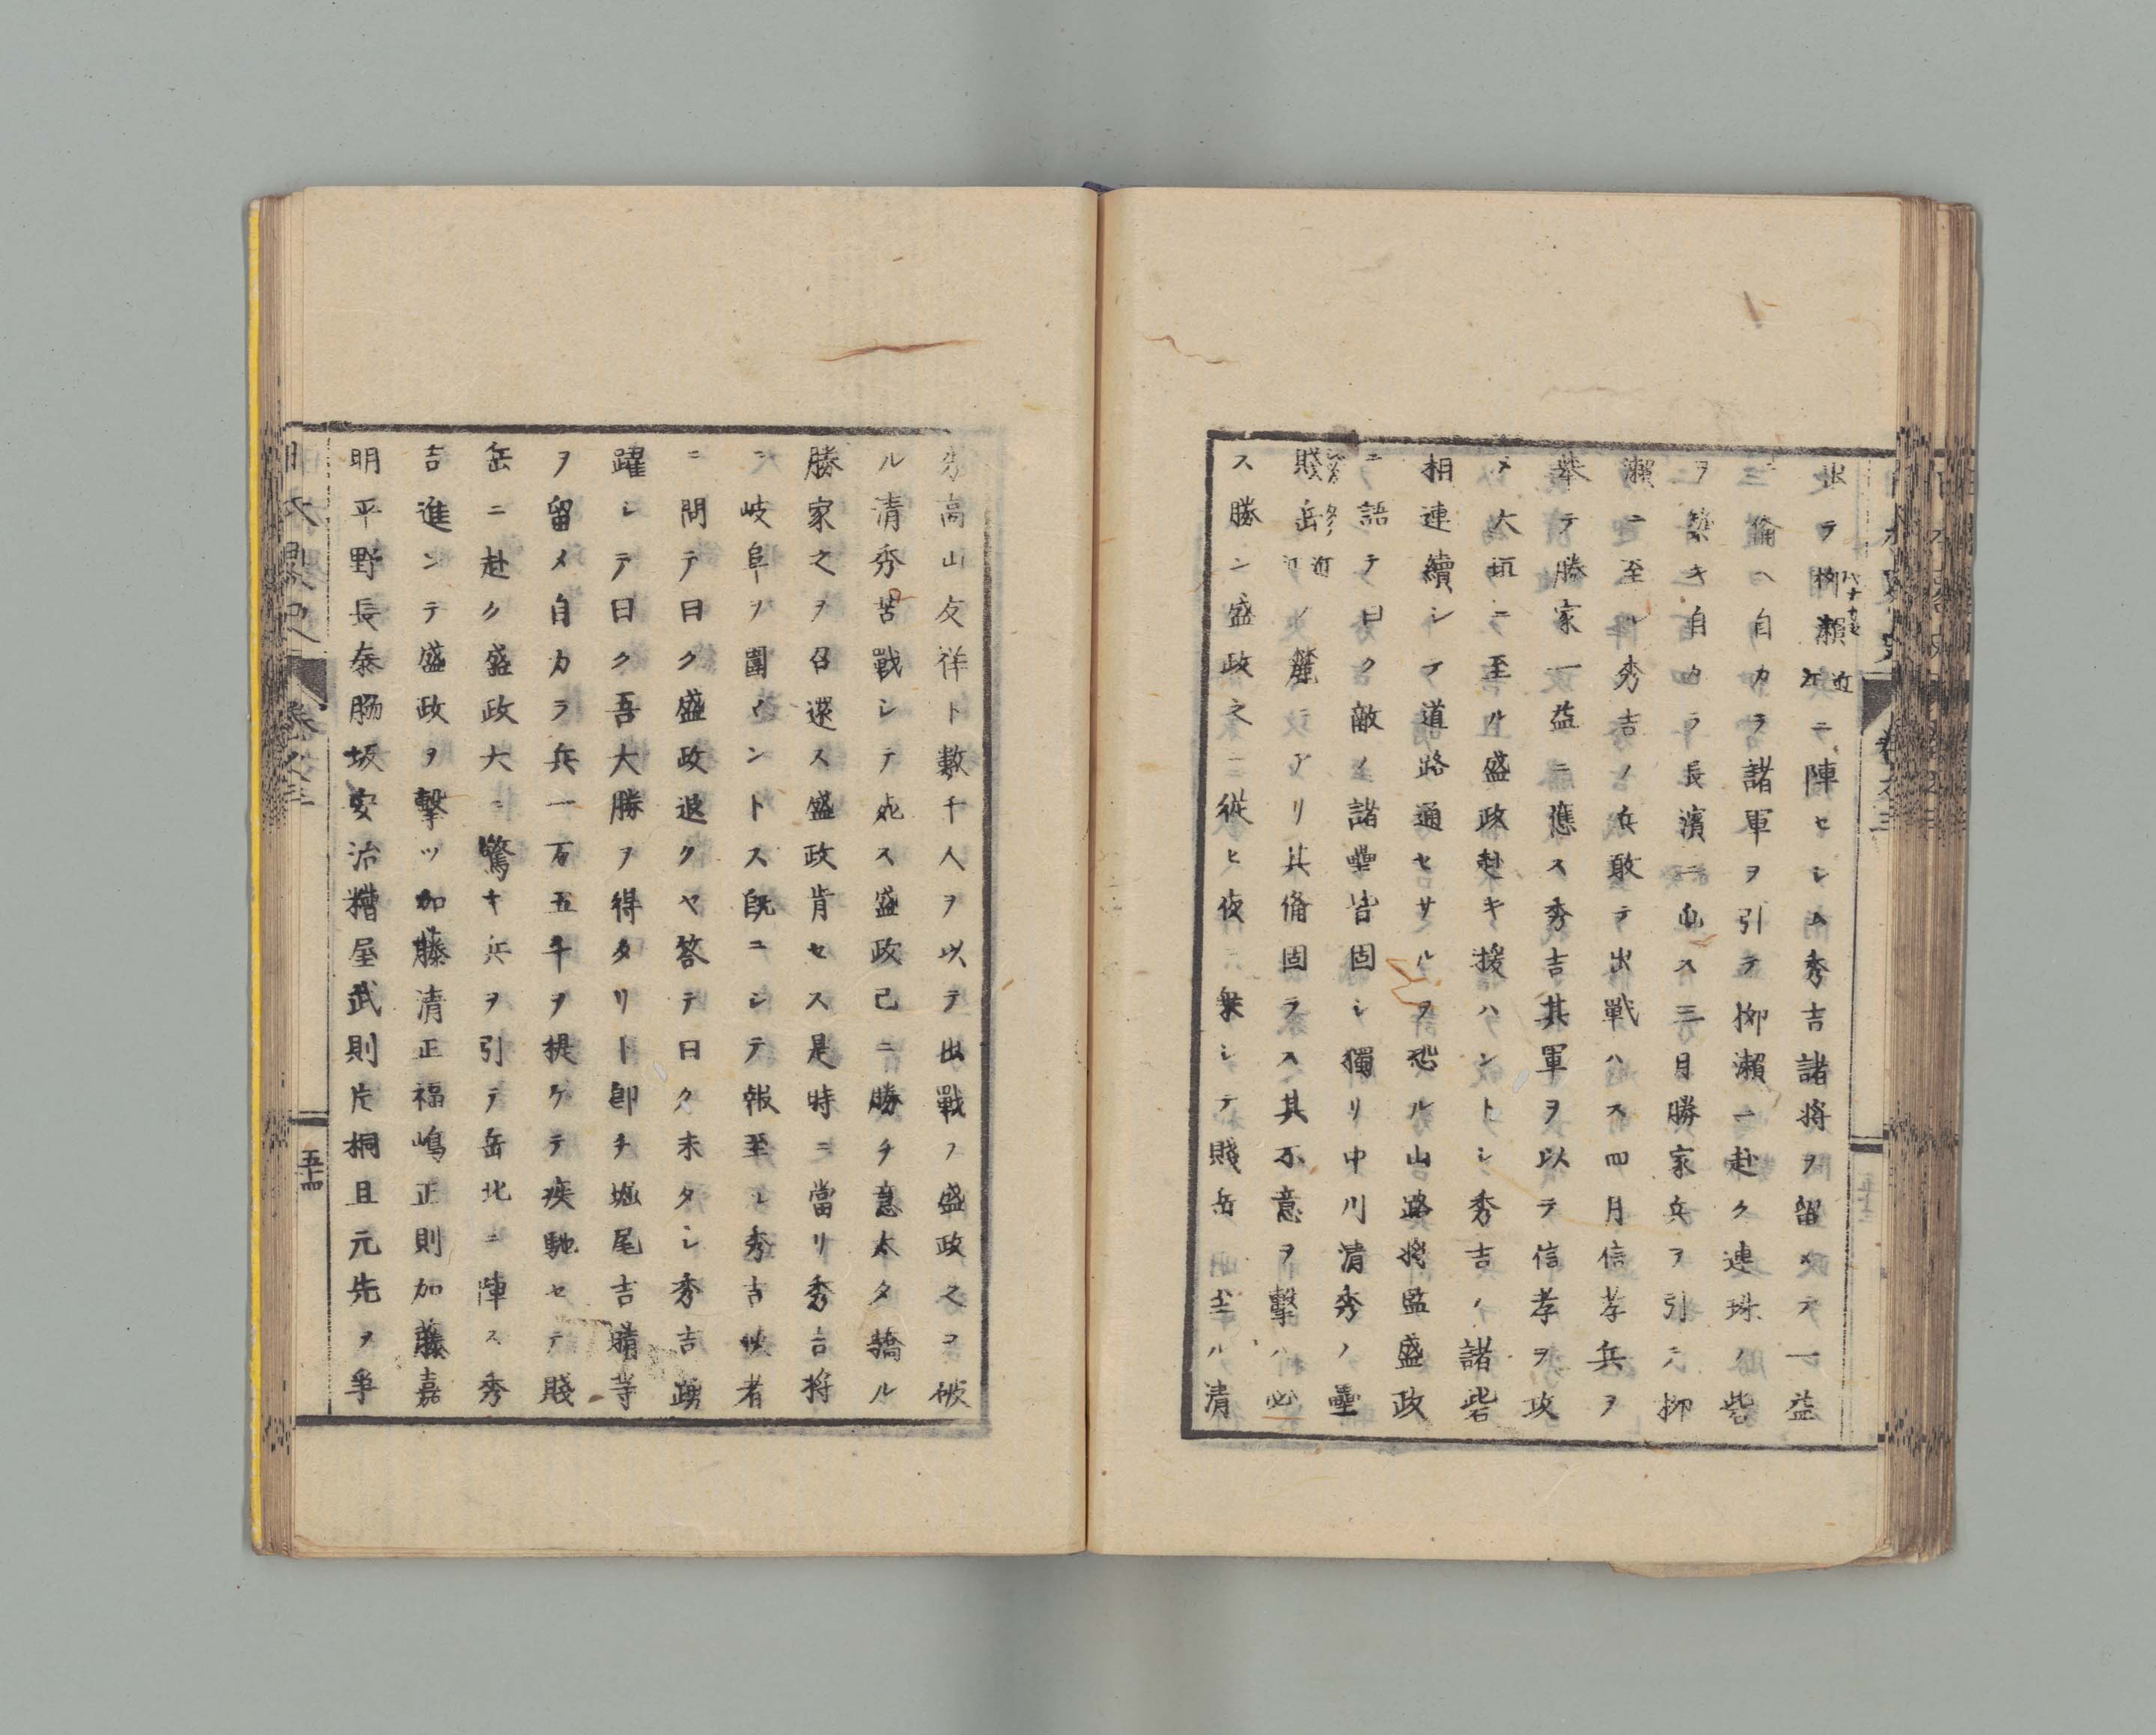 出ラ柳瀬近江ニ陣セシム秀吉諸将ヲ留メテ一益
ニ備ヘ自カラ諸軍ヲ引テ柳瀬ニ赴ク連珠ノ砦
ヲ築キ自カラ長濱ニ屯ス三月勝家兵ヲ引テ柳
瀬ニ至ル秀吉ノ兵敢テ出戰ハス四月信孝兵ヲ
挙テ勝家一益ニ應ス秀吉其軍ヲ以テ信孝ヲ攻
メ大垣ニ至ル盛政赴キ援ハントシ秀吉ノ諸砦
相連續シテ道路通セサルヲ恐ル山路将監盛政
ニ語テ曰ク敵ノ諸壘皆固シ獨リ中川清秀ノ壘
賤岳近江ノ麓ニアリ其備固ラス其不意ヲ擊ハ必
ス勝ン盛政之ニ従ヒ夜ニ乗シテ賤岳ニ至ル清
秀高山友祥ト數千人ヲ以テ出戰フ盛政之ヲ破
ル清秀苦戰シテ死ス盛政己ニ勝チ意太タ驕ル
勝家之ヲ召還ス盛政肯セス是時ニ當リ秀吉将
ニ岐阜ヲ圍マントス既ニシテ報至ル秀吉使者
ニ問テ曰ク盛政退クヤ答テ曰ク未タシ秀吉踴
躍シテ曰ク吾大勝ヲ得タリト卽チ堀尾吉晴等
ヲ留メ自カラ兵一万五千ヲ提ケテ疾馳セテ賤
岳ニ赴ク盛政大ニ驚キ兵ヲ引テ岳北ニ陣ス秀
吉進ンテ盛政ヲ擊ツ加藤清正福嶋正則加藤嘉
明平野長泰脇坂安治糟屋武則片桐且元先ヲ爭
日本畧史 卷之三 五十四